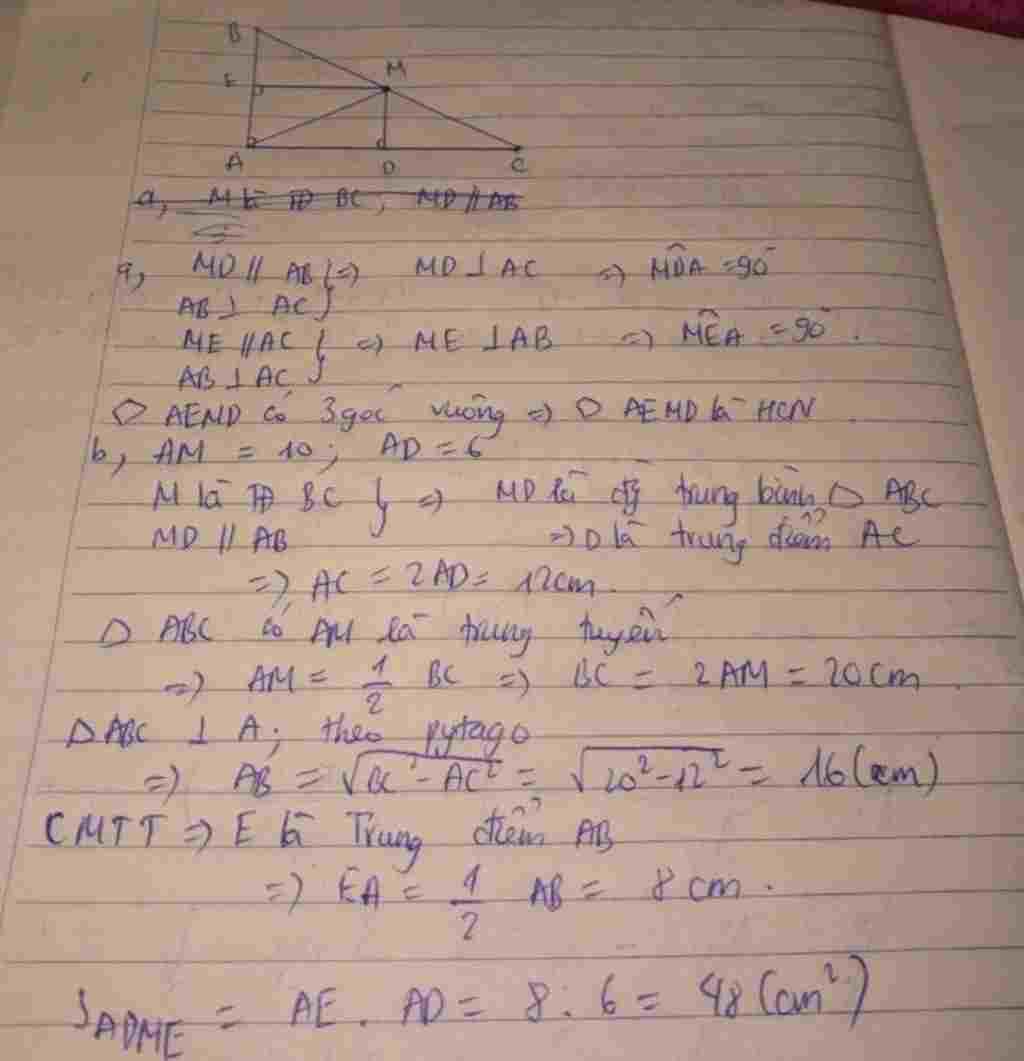 B
E
M
A
D
C
a, M là TĐ BC, MD // AB
a, MD // AB } => MD ⊥ AC => MDA = 90°
AB ⊥ AC
ME // AC } => ME ⊥ AB => MEA = 90°.
AB ⊥ AC
▱ AEMD có 3 góc vuông => ▱ AEMD là HCN.
b, AM = 10; AD = 6
M là TĐ BC } => MD là đg trung bình △ ABC
MD // AB => D là trung điểm AC
=> AC = 2AD = 12cm.
△ ABC có AM là trung tuyến
=> AM = 1/2 BC => BC = 2AM = 20cm.
△ABC ⊥ A; theo pytago
=> AB = √BC²-AC² = √20²-12² = 16(cm)
CMTT => E là Trung điểm AB
=> EA = 1/2 AB = 8cm.
S ADME = AE. AD = 8. 6 = 48(cm²)